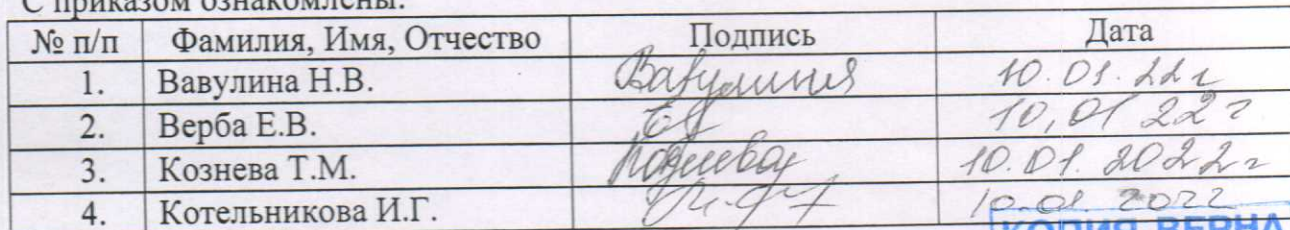 С приказом ознакомлены:
№ п/п Фамилия, Имя, Отчество Подпись Дата
1. Вавулина Н.В. Вавулина 10.01.22г
2. Верба Е.В. 10,01 22г
3. Кознева Т.М. Кознева 10.01.2022г
4. Котельникова И.Г. 10.01.2022
КОПИЯ ВЕРНА